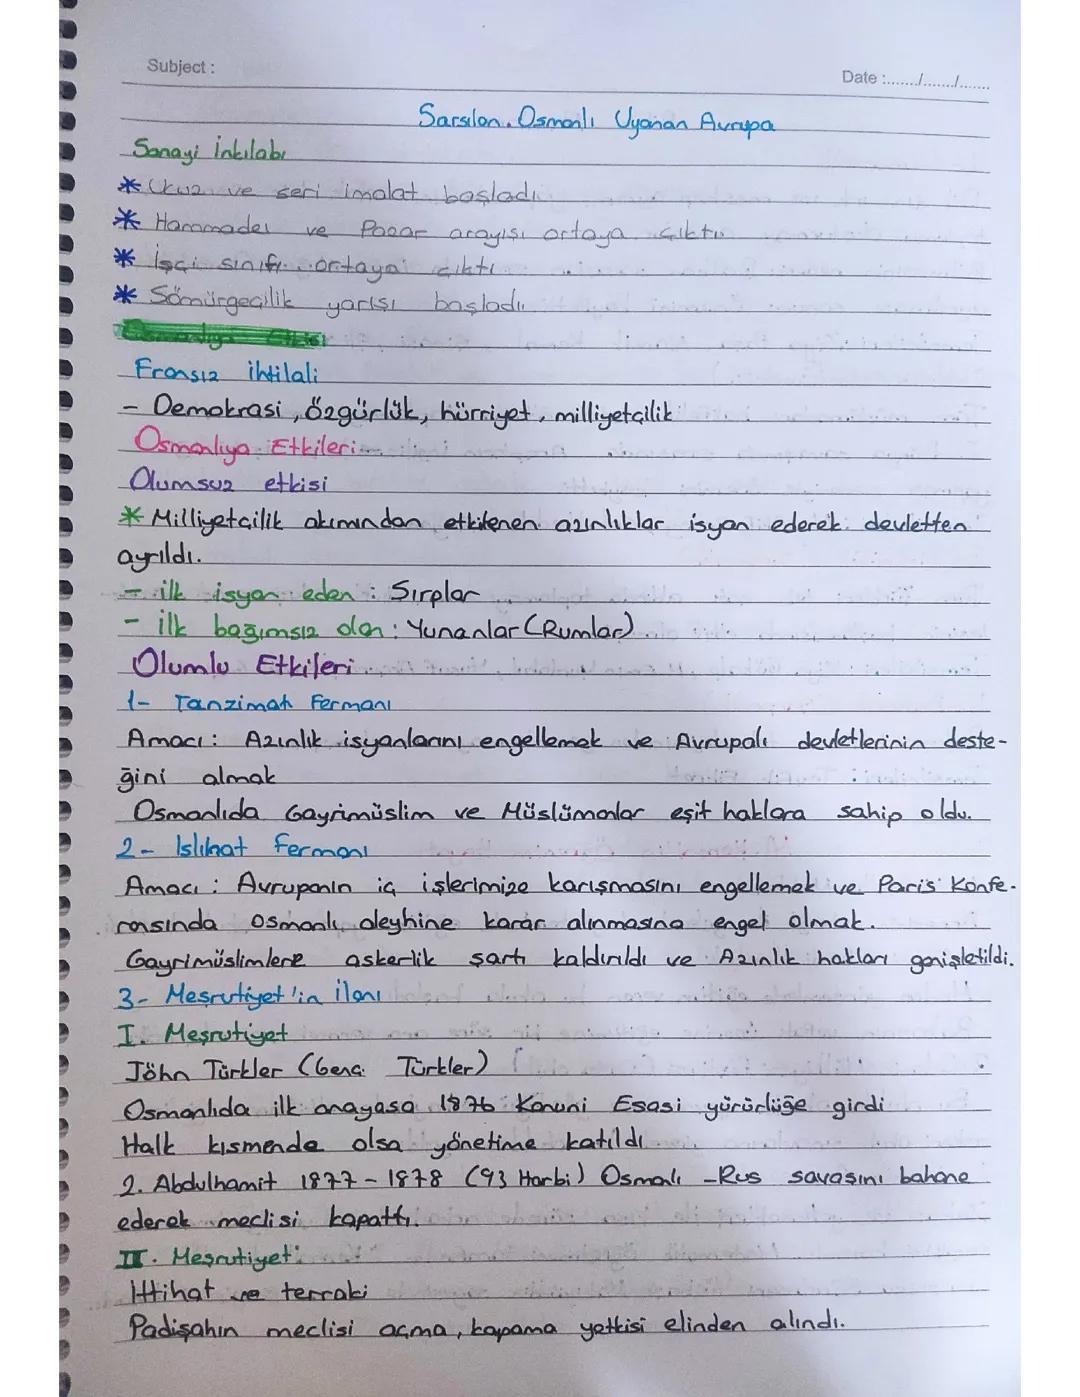 Subject :
Date :......./......./.......
Sarsılan Osmanlı Uyanan Avrupa
Sanayi İnkılabı
* Ucuz ve seri imalat başladı.
* Hammadde ve Pazar arayışı ortaya çıktı.
* İşçi sınıfı ortaya çıktı
* Sömürgecilik yarışı başladı.
Fransız ihtilali
- Demokrasi, özgürlük, hürriyet, milliyetçilik
Osmanlıya Etkileri
Olumsuz etkisi
* Milliyetçilik akımından etkilenen azınlıklar isyan ederek devletten
ayrıldı.
- ilk isyan eden : Sırplar
- ilk bağımsız olan : Yunanlar (Rumlar)
Olumlu Etkileri
1- Tanzimat Fermanı
Amacı : Azınlık isyanlarını engellemek ve Avrupalı devletlerinin deste-
ğini almak
Osmanlıda Gayrimüslim ve Müslümanlar eşit haklara sahip oldu.
2- Islahat Fermanı
Amacı : Avrupanın iç işlerimize karışmasını engellemek ve Paris Konfe-
rasında Osmanlı aleyhine karar alınmasına engel olmak.
Gayrimüslimlere askerlik şartı kaldırıldı ve Azınlık hakları genişletildi.
3- Meşrutiyet'in ilanı
I. Meşrutiyet
Jöhn Türkler (Genç Türkler)
Osmanlıda ilk anayasa 1876 Kanuni Esasi yürürlüğe girdi
Halk kısmende olsa yönetime katıldı.
2. Abdulhamit 1877-1878 (93 Harbi) Osmanlı-Rus savaşını bahane
ederek meclisi kapattı.
II. Meşrutiyet
İttihat ve terraki
Padişahın meclisi açma, kapama yetkisi elinden alındı.